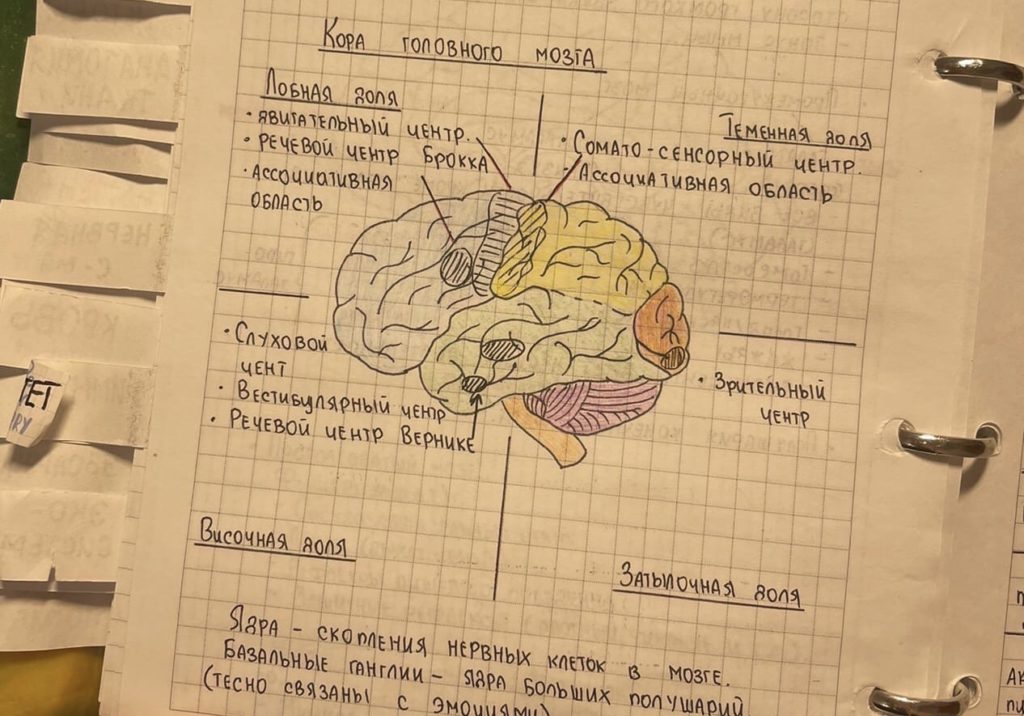 Кора головного мозга
Лобная доля
• явигательный центр.
• Речевой центр Брокка
• Ассоциативная
область
Теменная доля
• Сомато-сенсорный центр.
• Ассоциативная область
• Слуховой
чент
• Вестибулярный центр
• Речевой центр Вернике
• Зрительный
центр
Височная доля
Затылочная доля
Ядра - скопления нервных клеток в мозге.
Базальные ганглии - ядра больших полушарий
(тесно связаны с эмоциями)
ЕТ
RY